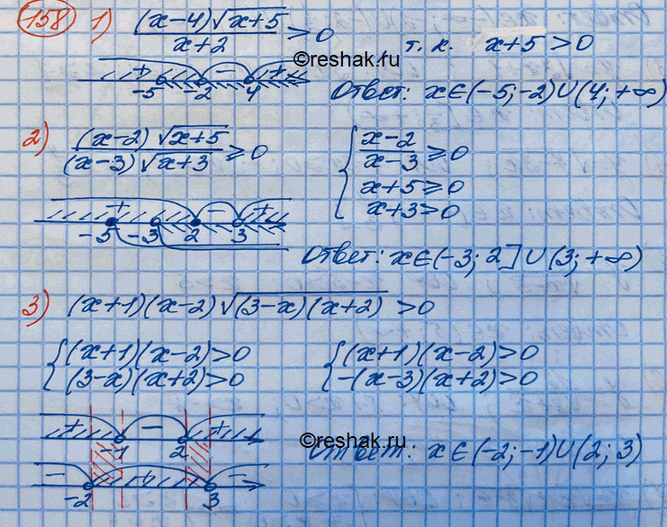 158 1) (x-4)√(x+5) / (x+2) > 0
©reshak.ru
т. к. x+5 > 0
+ - +
-5 -2 4
Ответ: x∈(-5;-2)∪(4;+∞)
2) (x-2)√(x+5) / (x-3)√(x+3) ≥ 0
{ (x-2)/(x-3) ≥ 0
x+5 ≥ 0
x+3 > 0
+ - +
-5 -3 2 3
Ответ: x∈(-3; 2]∪(3;+∞)
3) (x+1)(x-2)√((3-x)(x+2)) > 0
{ (x+1)(x-2)>0
(3-x)(x+2)>0
{ (x+1)(x-2)>0
-(x-3)(x+2)>0
+ - +
-1 2
©reshak.ru
Ответ: x∈(-2;-1)∪(2;3)
- + -
-2 3